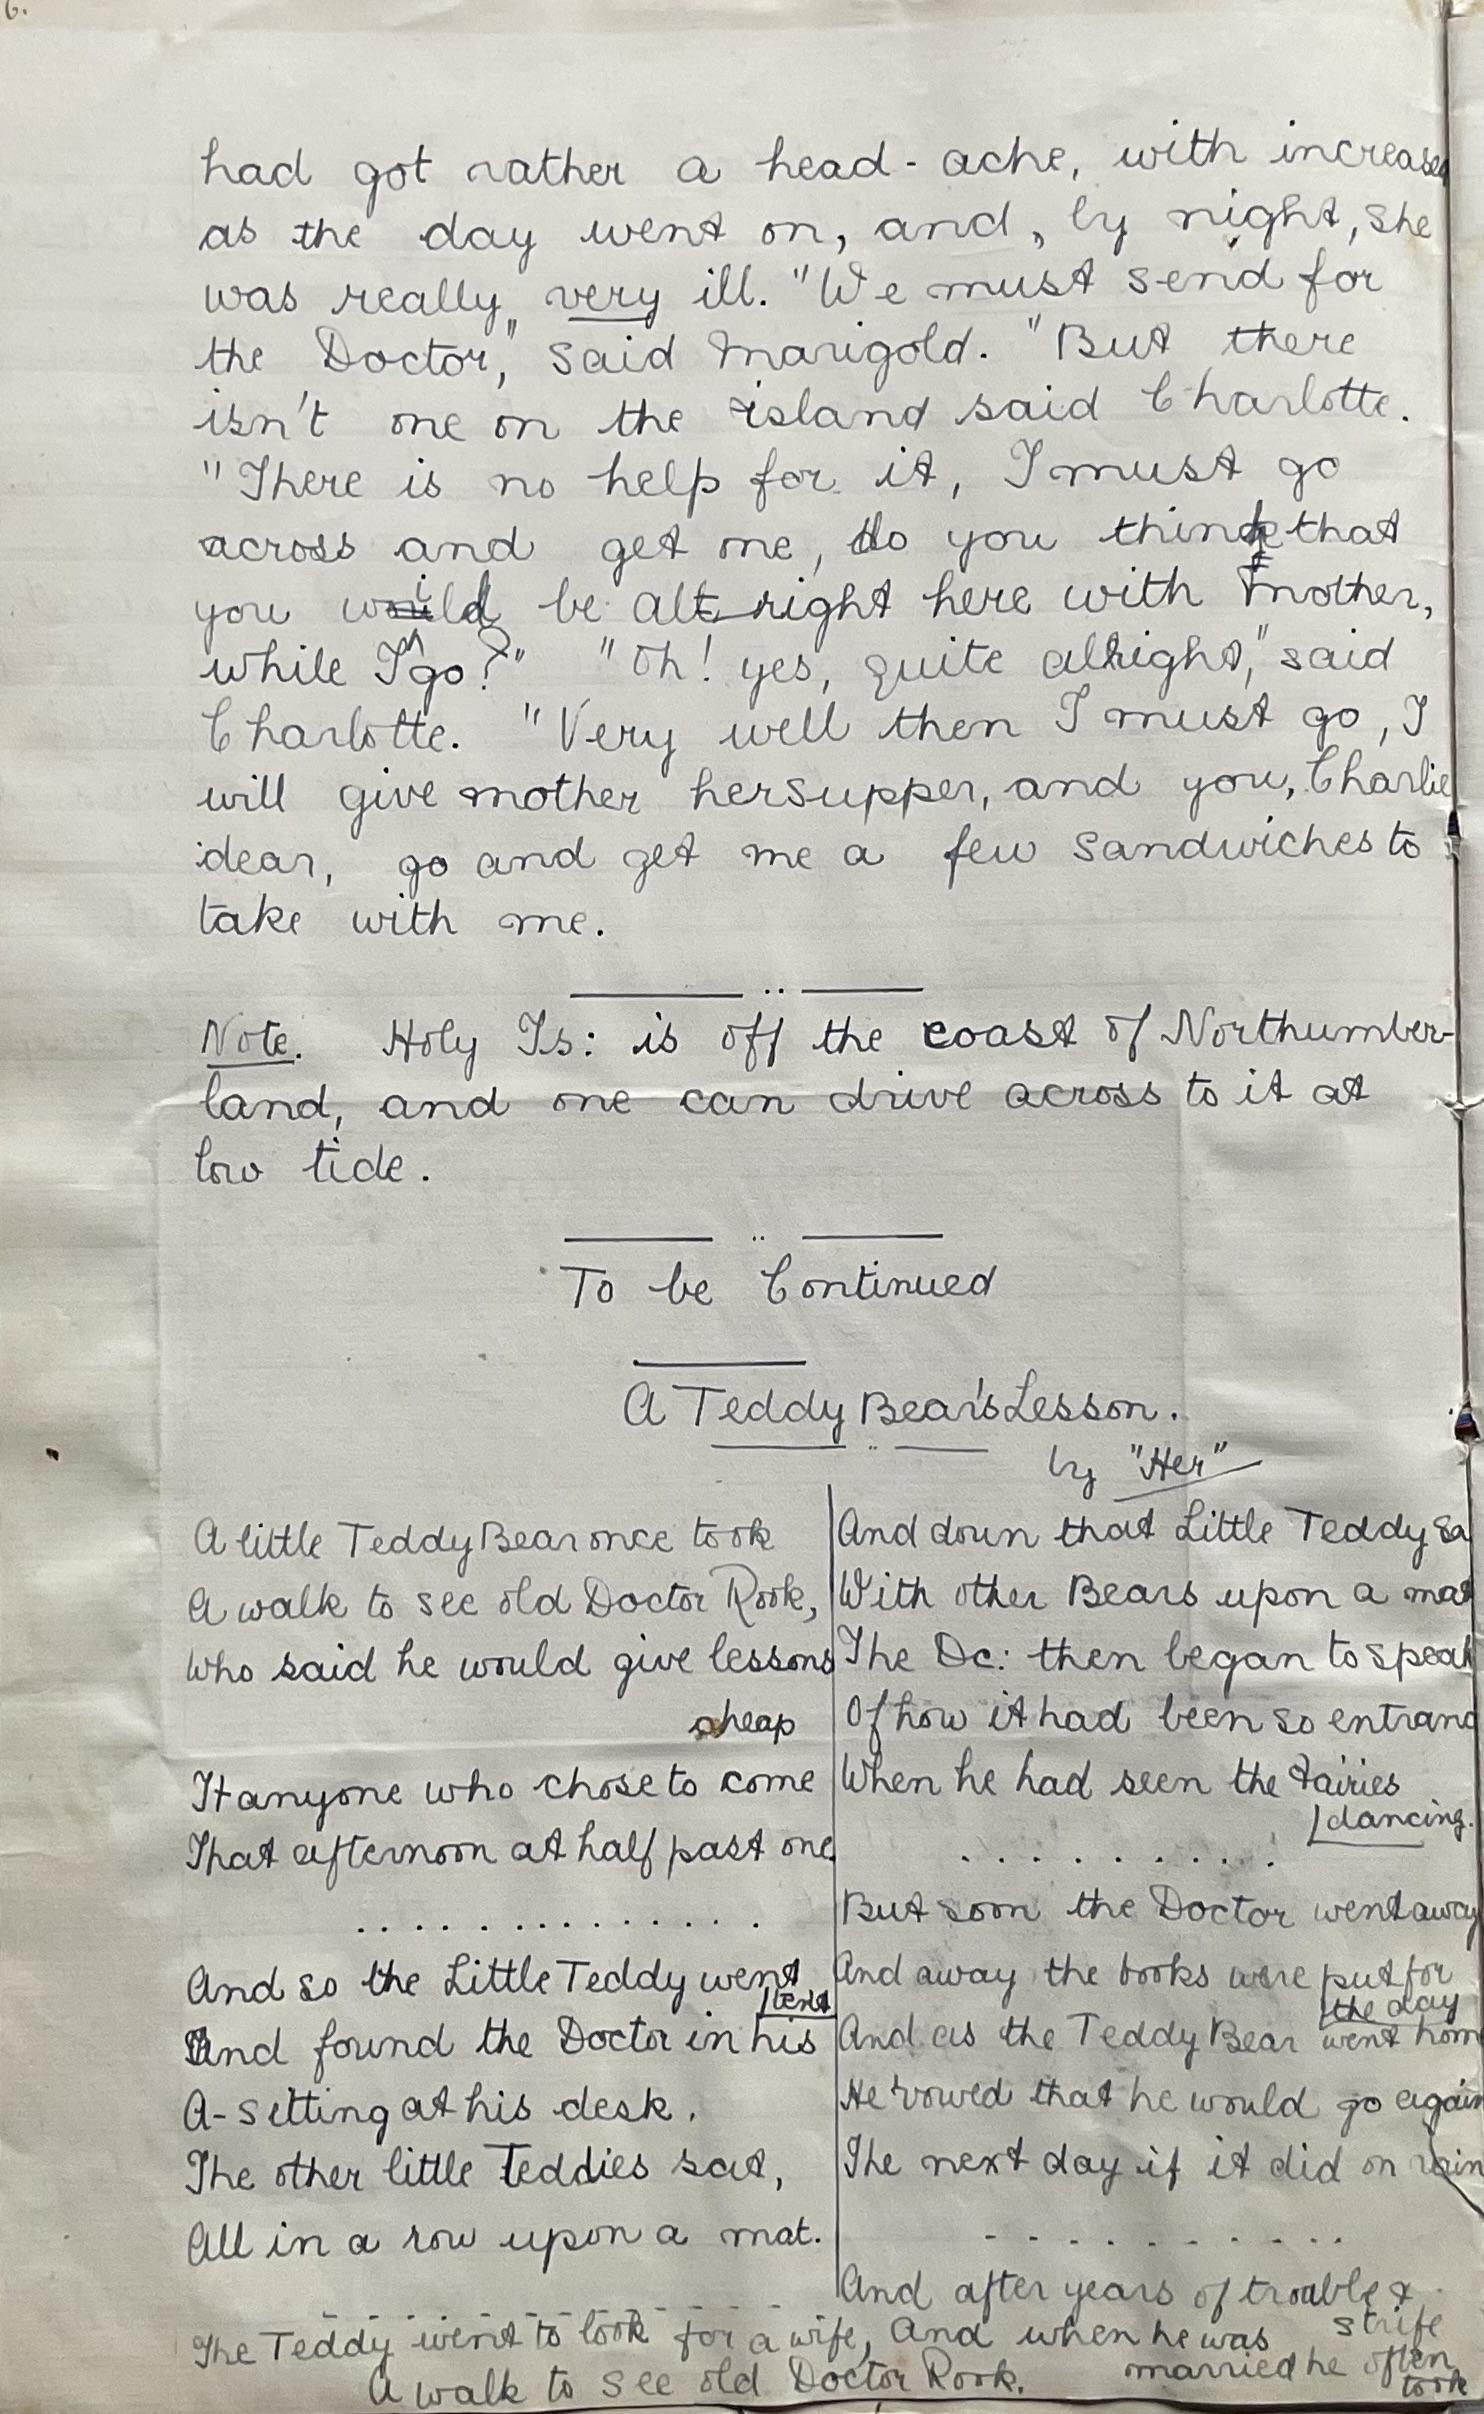 6.
had got rather a head-ache, with increased
as the day went on, and, by night, she
was really very ill. "We must send for
the Doctor," said Marigold. "But there
isn't one on the island said Charlotte.
"There is no help for it, I must go
across and get one, do you think that
you will be alt right here with mother,
while I go?" "Oh! yes, quite allright," said
Charlotte. "Very well then I must go, I
will give mother her supper, and you, Charlie
dear, go and get me a few sandwiches to
take with me.
Note. Holy Is: is off the coast of Northumber-
land, and one can drive across to it at
low tide.
To be Continued
A Teddy Bear's Lesson.
by "Her"
A little Teddy Bear once took
A walk to see old Doctor Rook,
Who said he would give lessons
cheap
It anyone who chose to come
That afternoon at half past one.
. . . . . . . . . . . . . .
And so the Little Teddy went
And found the Doctor in his
tent
A-sitting at his desk.
The other little Teddies sat,
All in a row upon a mat.
And down that Little Teddy sa
With other Bears upon a mat
The Dc: then began to speak
Of how it had been so entranc
When he had seen the fairies
dancing.
. . . . . . . . . .
But soon the Doctor went away
And away the books were put for
the day
And as the Teddy Bear went hom
He vowed that he would go again
The next day if it did on rain
- - - - - - - - - - -
And after years of trouble &
strife
The Teddy went to look for a wife, And when he was
married he often
took
A walk to see old Doctor Rook.